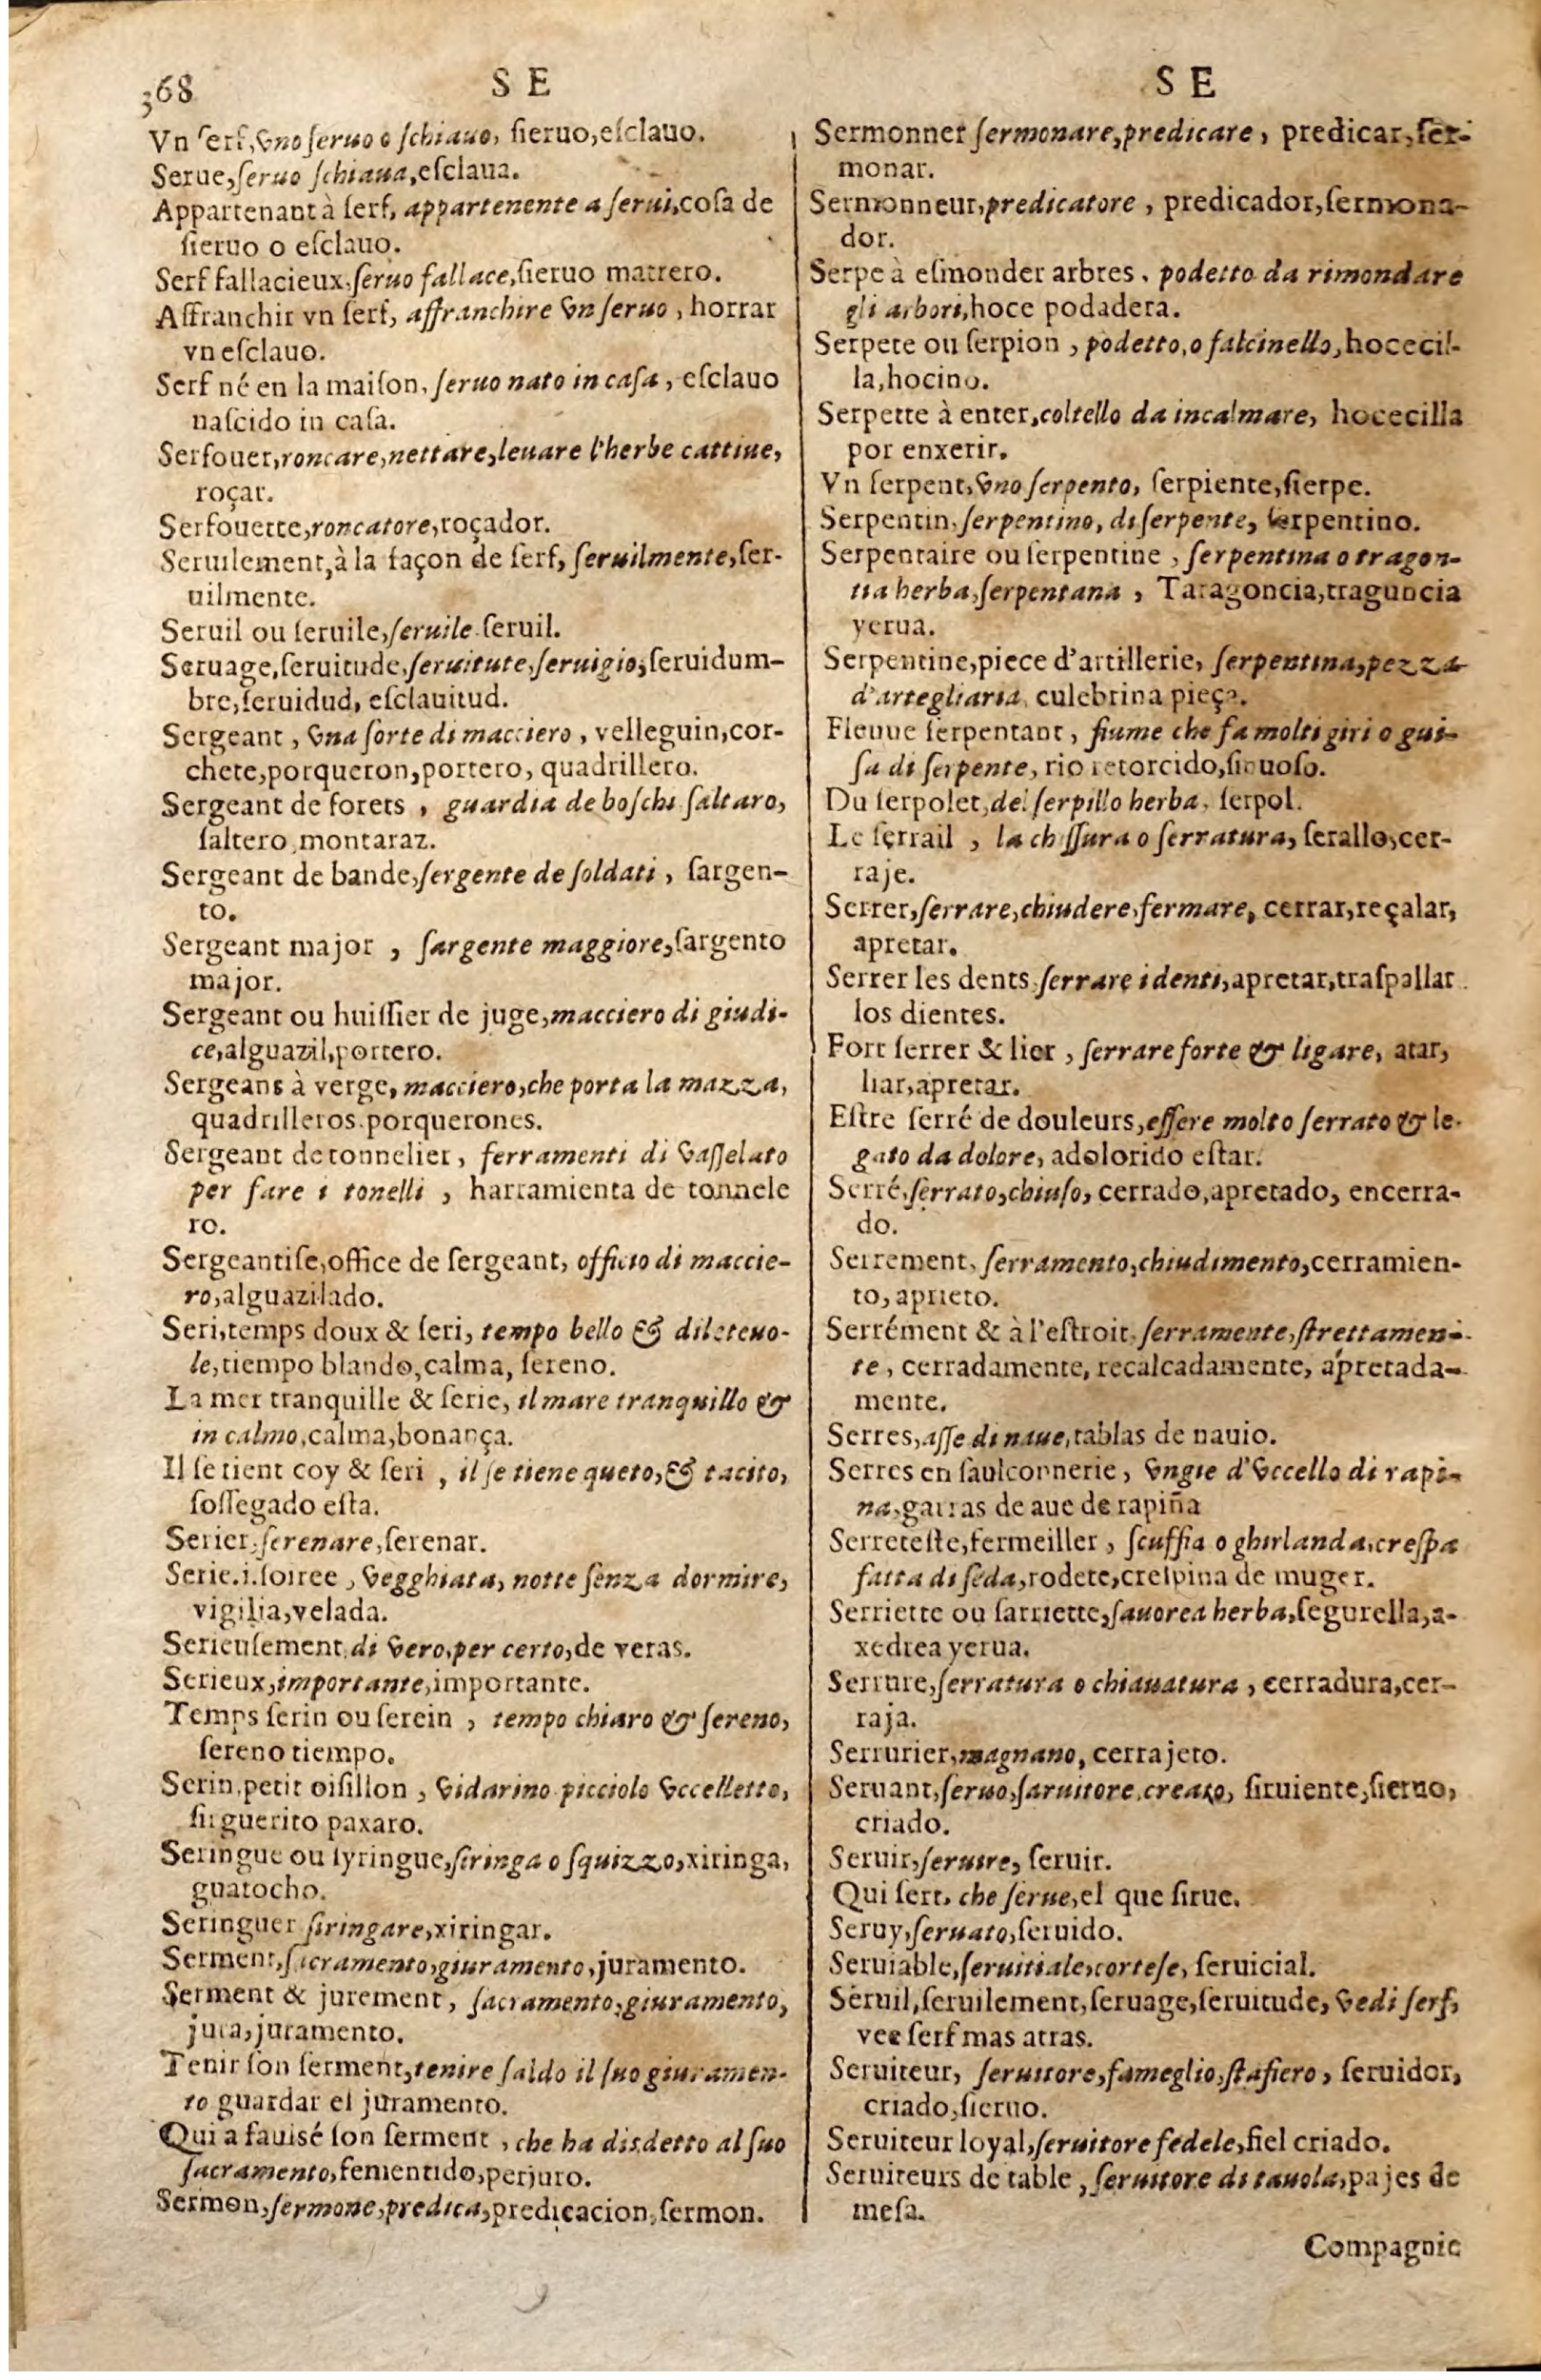 368
S E
S E
Vn ſerf, vno ſeruo o ſchiauo, ſieruo,eſclauo.
Serue,ſeruo ſchiaua,eſclaua.
Appartenant à ſerf, appartenente a ſerui,coſa de
ſieruo o eſclauo.
Serf fallacieux,ſeruo fallace,ſieruo matrero.
Affranchir vn ſerf, affranchire vn ſeruo , horrar
vn eſclauo.
Serf né en la maiſon, ſeruo nato in caſa , eſclauo
naſcido in caſa.
Serfouer,roncare,nettare,leuare l'herbe cattiue,
roçar.
Serfouette,roncatore,roçador.
Seruilement,à la façon de ſerf, ſeruilmente,ſer-
uilmente.
Seruil ou ſeruile,ſeruile.ſeruil.
Seruage,ſeruitude,ſeruitute,ſeruigio,ſeruidum-
bre,ſeruidud, eſclauitud.
Sergeant , vna ſorte di macciero , velleguin,cor-
chete,porqueron,portero, quadrillero.
Sergeant de forets , guardia de boſchi ſaltaro,
ſaltero,montaraz.
Sergeant de bande,ſergente de ſoldati , ſargen-
to.
Sergeant major , ſargente maggiore,ſargento
major.
Sergeant ou huiſſier de juge,macciero di giudi-
ce,alguazil,portero.
Sergeans à verge, macciero,che porta la mazza,
quadrilleros.porquerones.
Sergeant de tonnelier, ferramenti di vaſſelato
per fare i tonelli , harramienta de tonnele
ro.
Sergeantiſe,office de ſergeant, officio di maccie-
ro,alguazilado.
Seri,temps doux & ſeri, tempo bello & dileteuo-
le,tiempo blando,calma, ſereno.
La mer tranquille & ſerie, il mare tranquillo &
in calmo,calma,bonança.
Il ſe tient coy & ſeri , il ſe tiene queto,& tacito,
ſoſſegado eſta.
Serier,ſerenare,ſerenar.
Serie.i.ſoiree , vegghiata, notte ſenza dormire,
vigilia,velada.
Serieuſement,di vero,per certo,de veras.
Serieux,importante,importante.
Temps ſerin ou ſerein , tempo chiaro & ſereno,
ſereno tiempo.
Serin,petit oiſillon , vidarino picciolo vccelletto,
ſirguerito paxaro.
Seringue ou ſyringue,ſiringa o ſquizzo,xiringa,
guatocho.
Seringuer ſiringare,xiringar.
Serment,ſacramento,giuramento,juramento.
Serment & jurement, ſacramento,giuramento,
jura,juramento.
Tenir ſon ſerment,tenire ſaldo il ſuo giuramen-
to guardar el juramento.
Qui a fauiſé ſon ſerment , che ha disdetto al ſuo
ſacramento,fementido,perjuro.
Sermon,ſermone,predica,predicacion,ſermon.
Sermonner ſermonare,predicare , predicar,ſer-
monar.
Sermonneur,predicatore , predicador,ſermona-
dor.
Serpe à eſmonder arbres , podetto da rimondare
gli arbori,hoce podadera.
Serpete ou ſerpion , podetto,o falcinello,hocecil-
la,hocino.
Serpette à enter,coltello da incalmare, hocecilla
por enxerir.
Vn ſerpent,vno ſerpento, ſerpiente,ſierpe.
Serpentin,ſerpentino, di ſerpente, ſerpentino.
Serpentaire ou ſerpentine , ſerpentina o tragon-
tia herba,ſerpentana , Taragoncia,traguncia
yerua.
Serpentine,piece d'artillerie, ſerpentina,pezza
d'artegliaria, culebrina pieça.
Fleuue ſerpentant , fiume che fa molti giri o gui-
ſa di ſerpente, rio retorcido,ſinuoſo.
Du ſerpolet,del ſerpillo herba, ſerpol.
Le ſerrail , la chiſſura o ſerratura, ſerallo,cer-
raje.
Serrer,ſerrare,chiudere,fermare, cerrar,reçalar,
apretar.
Serrer les dents,ſerrare i denti,apretar,traſpallar
los dientes.
Fort ſerrer & lier , ſerrare forte & ligare, atar,
liar,apretar.
Eſtre ſerré de douleurs,eſſere molto ſerrato & le-
gato da dolore, adolorido eſtar.
Serré,ſerrato,chiuſo, cerrado,apretado, encerra-
do.
Serrement, ſerramento,chiudimento,cerramien-
to,aprieto.
Serrément & à l'eſtroit,ſerramente,ſtrettamen-
te , cerradamente, recalcadamente, apretada-
mente.
Serres,aſſe di naue,tablas de nauio.
Serres en faulconnerie, vngie d'vccello di rapi-
na,garras de aue de rapiña
Serreteſte,fermeiller , ſcuffia o ghirlanda,creſpa
fatta di ſeda,rodete,creſpina de muger.
Serriette ou ſarriette,ſauorea herba,ſegurella,a-
xedrea yerua.
Serrure,ſerratura o chiauatura , cerradura,cer-
raja.
Serrurier,magnano, cerrajero.
Seruant,ſeruo,ſaruitore,creato, ſiruiente,ſieruo,
criado.
Seruir,ſeruire, ſeruir.
Qui ſert, che ſerue,el que ſirue.
Seruy,ſeruato,ſeruido.
Seruiable,ſeruitiale,corteſe, ſeruicial.
Seruil,ſeruilement,ſeruage,ſeruitude, vedi ſerf,
vee ſerf mas atras.
Seruiteur, ſeruitore,fameglio,ſtafiero , ſeruidor,
criado,ſieruo.
Seruiteur loyal,ſeruitore fedele,fiel criado.
Seruiteurs de table , ſeruitore di tauola,pajes de
meſa.
Compagnie